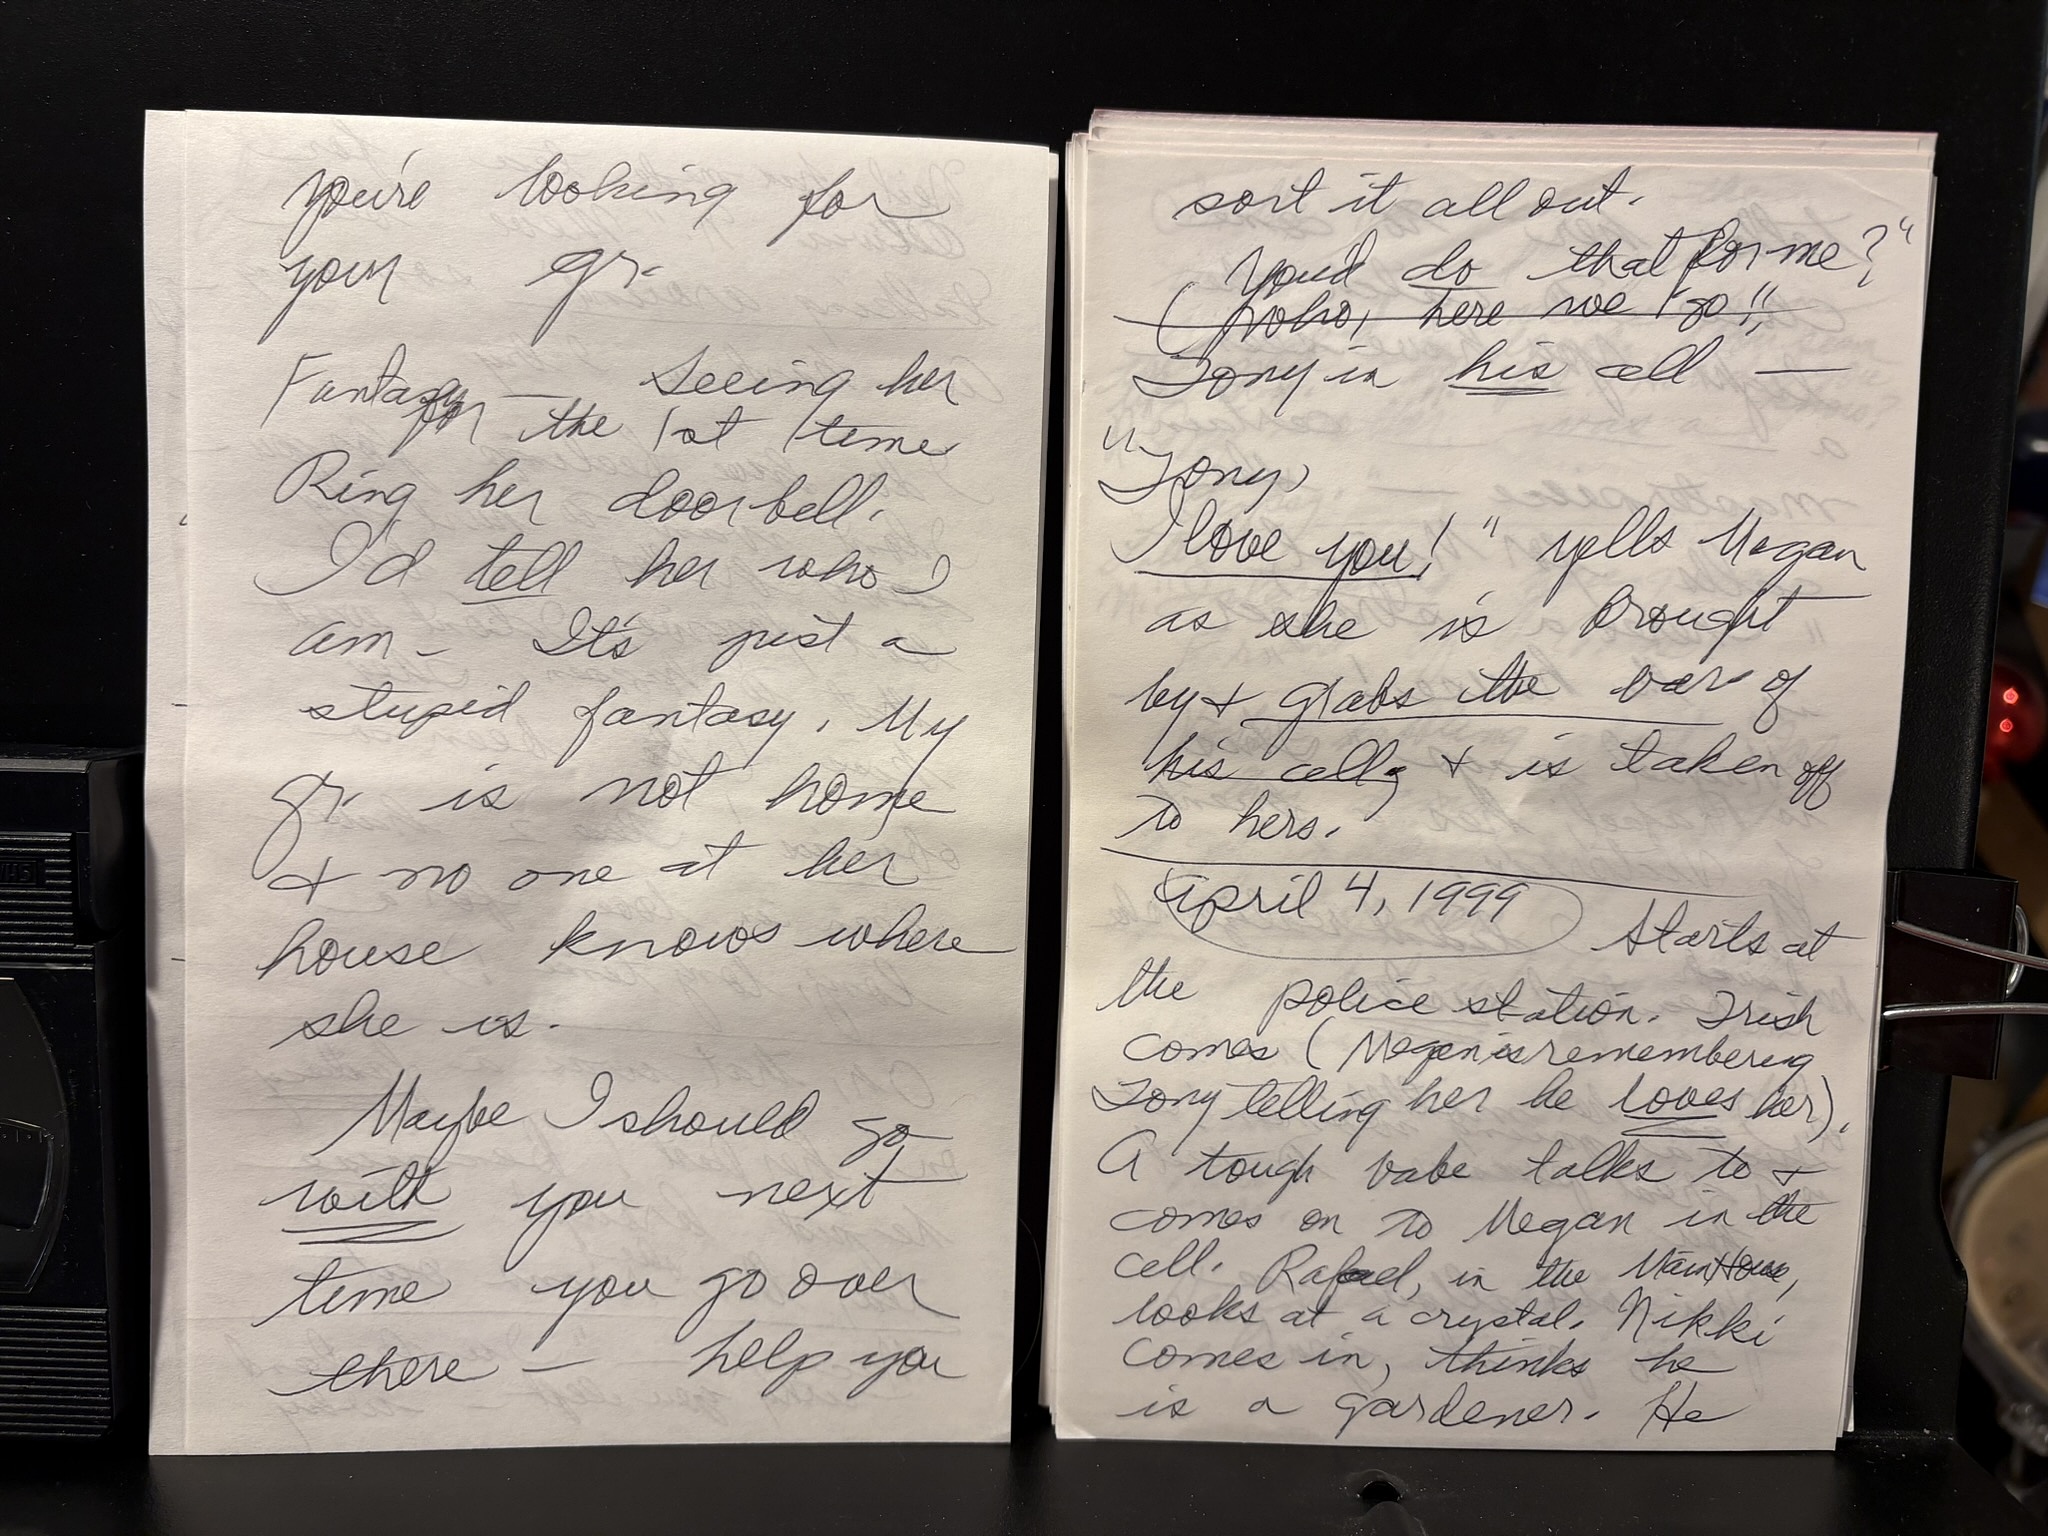 you're looking for
your gr.
Fantasy — Seeing her
for the 1st time
Ring her doorbell.
I'd tell her who I
am — It's just a
stupid fantasy. My
gr. is not home
& no one at her
house knows where
she is.
Maybe I should go
with you next
time you go over
there — help you
sort it all out.
You'd do that for me?"
(Whoo, here we go!!
Tony in his cell —
"Tony,
I love you!" yells Megan
as she is brought
by & grabs the bars of
his cell, & is taken off
to hers.
April 4, 1999 Starts at
the police station. Trish
comes (Megan is remembering
Tony telling her he loves her).
A tough babe talks to &
comes on to Megan in the
cell. Rafael, in the Main House,
looks at a crystal. Nikki
comes in, thinks he
is a gardener. He